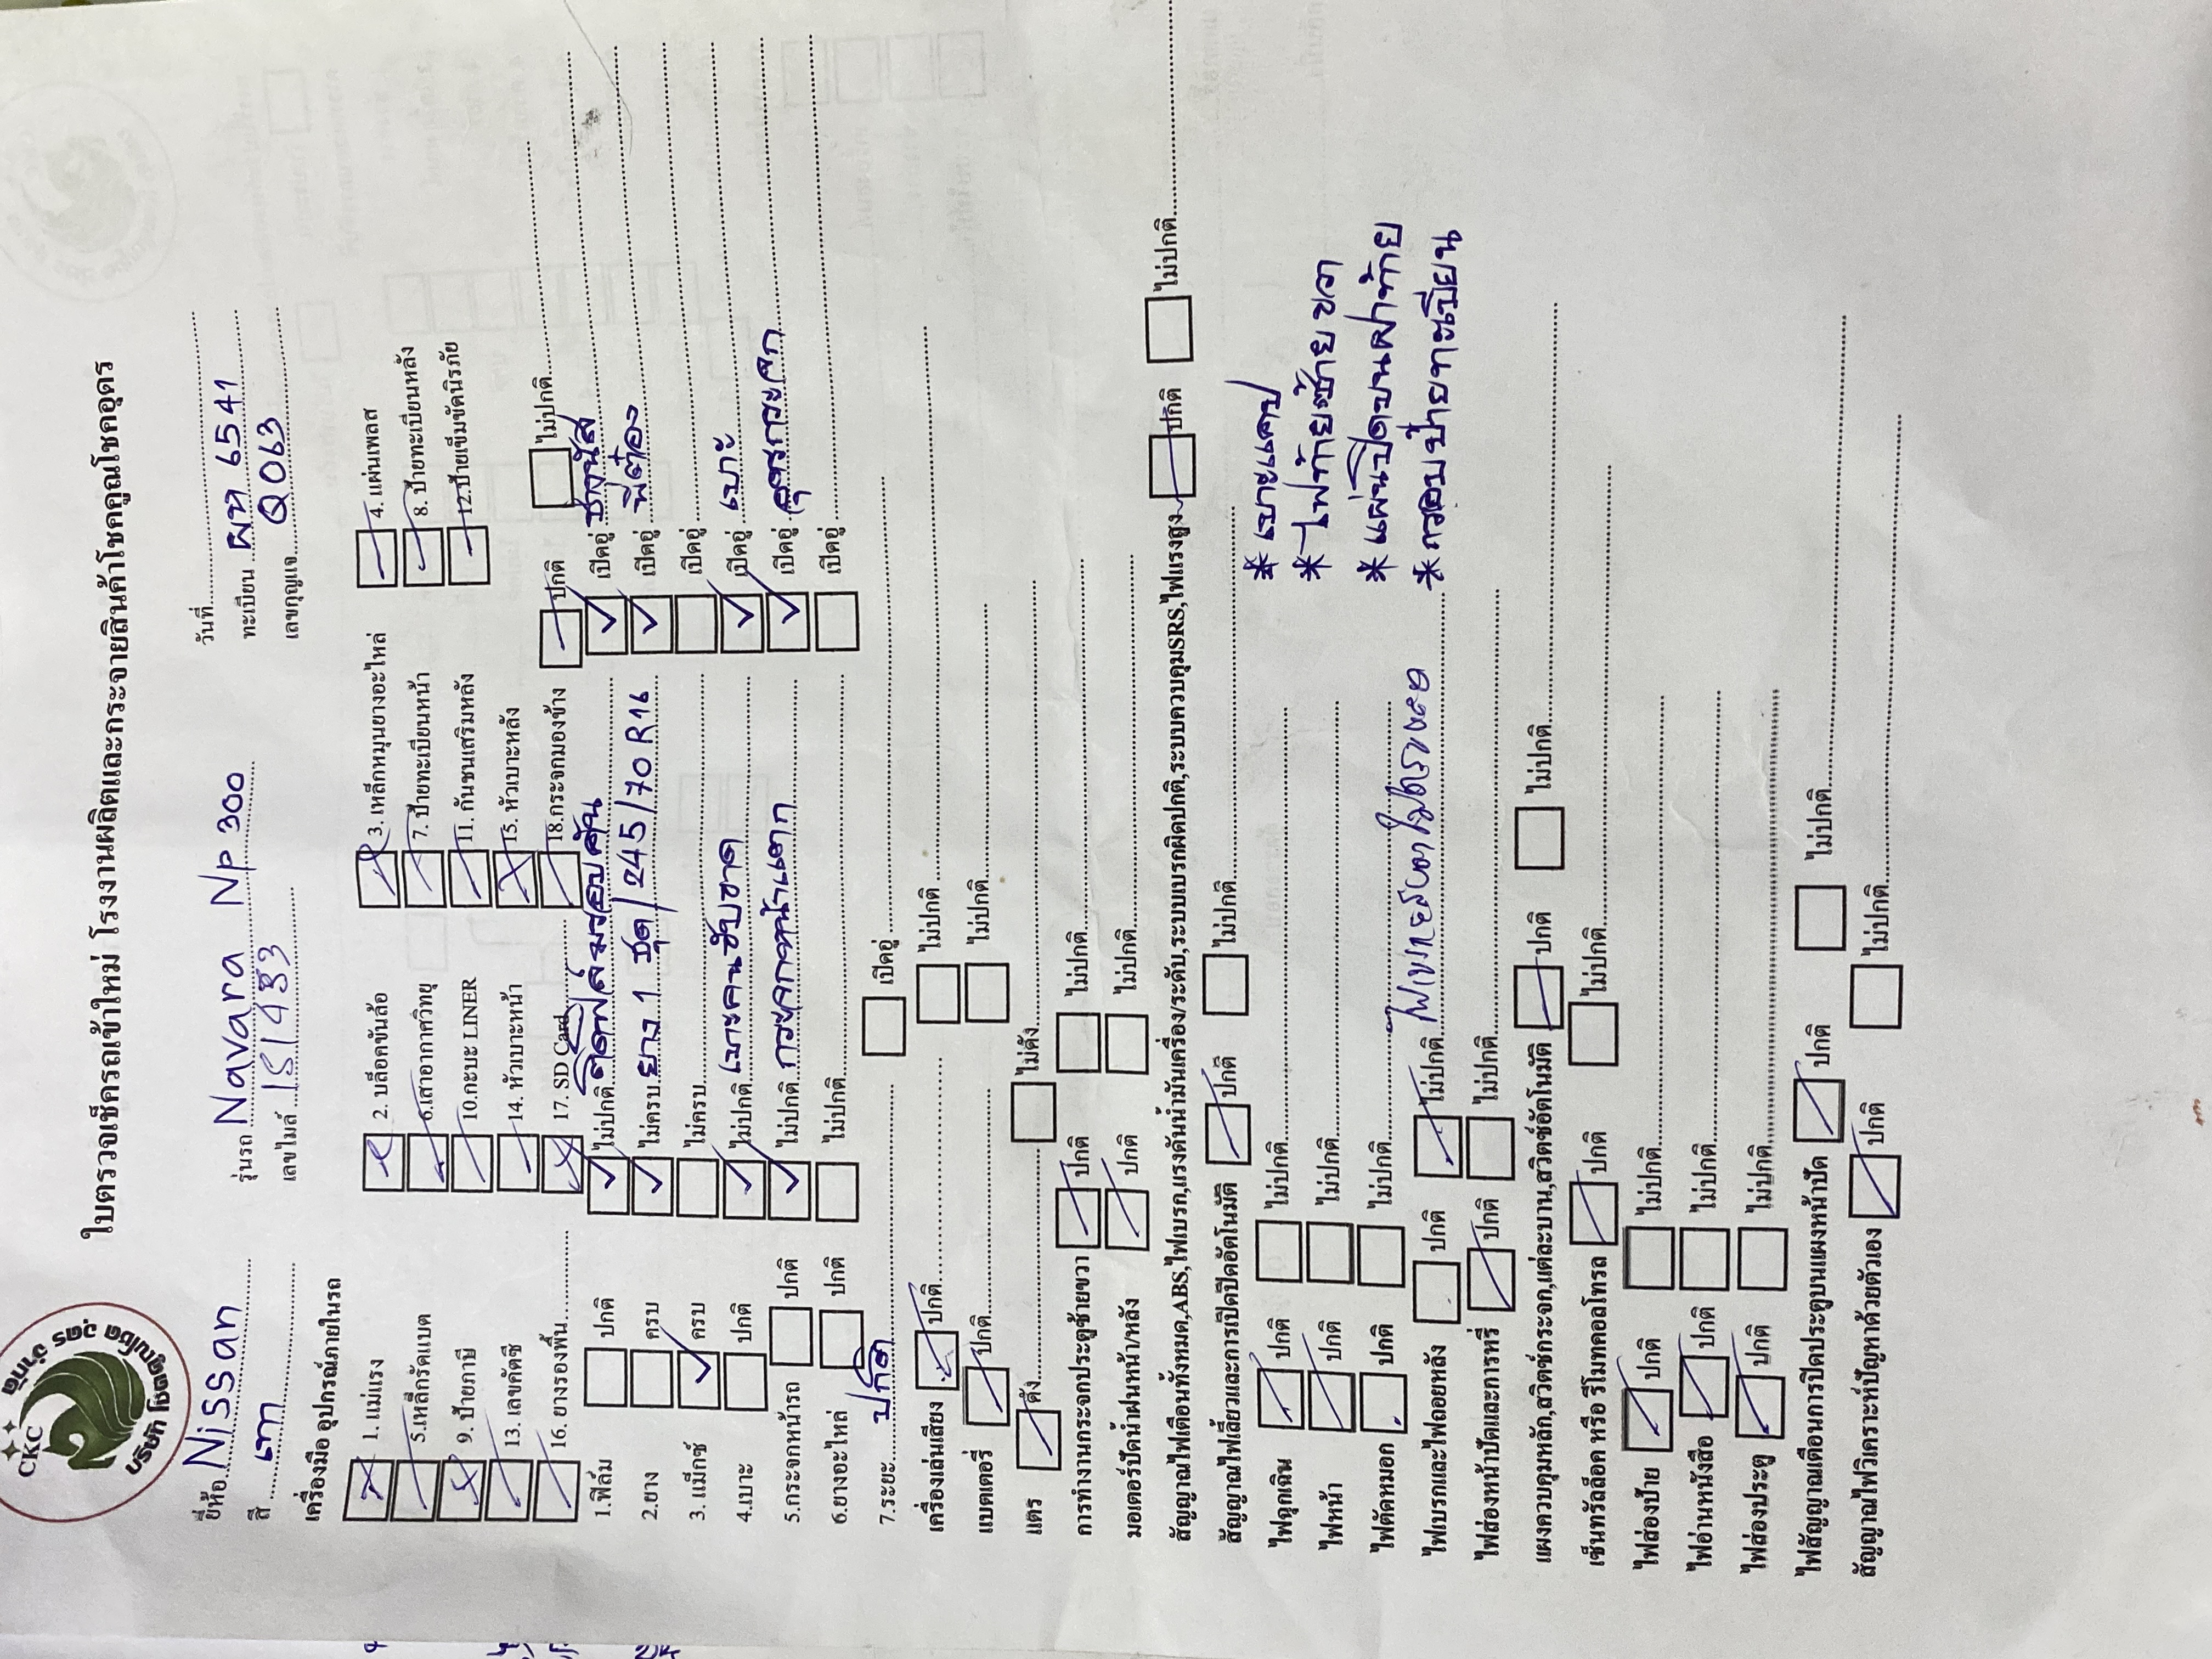 CKC
บริษัท โชคคูณโชค อุดร จำกัด
ใบตรวจเช็ครถเข้าใหม่ โรงงานผลิตและกระจายสินค้าโชคคูณโชคอุดร
วันที่
ยี่ห้อ Nissan รุ่นรถ Navara Np 300 ทะเบียน ผท 6541
สี เทา เลขไมล์ 151483 เลขกุญแจ Q063
เครื่องมือ อุปกรณ์ภายในรถ
1. แม่แรง 2. บล็อคขันล้อ 3. เหล็กหมุนยางอะไหล่ 4. แผ่นเพลส
5.เหล็กรัคแบต 6.เสาอากาศวิทยุ 7. ป้ายทะเบียนหน้า 8. ป้ายทะเบียนหลัง
9. ป้ายภาษี 10.กะบะ LINER 11. กันชนเสริมหลัง 12.ป้ายเข็มขัดนิรภัย
13. เลขคัตซี 14. หัวเบาะหน้า 15. หัวเบาะหลัง
16. ยางรองพื้น 17. SD Card 18.กระจกมองข้าง ปกติ ไม่ปกติ
1.ฟิล์ม ปกติ ไม่ปกติ ติดฟิล์มรอบคัน เปิดอู่ ช่างนัส
2.ยาง ครบ ไม่ครบ ยาง 1 ชุด / 245/70 R16 เปิดอู่ พี่ต๋อง
3. แม็กซ์ ครบ ไม่ครบ เปิดอู่
4.เบาะ ปกติ ไม่ปกติ เบาะคนขับขาด เปิดอู่ เบาะ
5.กระจกหน้ารถ ปกติ ไม่ปกติ กระจกหน้าแตก เปิดอู่ อุดรกระจก
6.ยางอะไหล่ ปกติ ไม่ปกติ เปิดอู่
7.ระยะ ปกติ เปิดอู่
เครื่องเล่นเสียง ปกติ ไม่ปกติ
แบตเตอรี่ ปกติ ไม่ปกติ
แตร ดัง ไม่ดัง
การทำงานกระจกประตูซ้ายขวา ปกติ ไม่ปกติ
มอเตอร์ปัดน้ำฝนหน้า/หลัง ปกติ ไม่ปกติ
สัญญาณไฟเตือนทั้งหมด,ABS,ไฟเบรก,แรงดันน้ำมันเครื่อง/ระดับ,ระบบเบรกผิดปกติ,ระบบควบคุมSRS,ไฟแรงสูง ปกติ ไม่ปกติ
สัญญาณไฟเลี้ยวและการเปิดปิดอัตโนมัติ ปกติ ไม่ปกติ
ไฟฉุกเฉิน ปกติ ไม่ปกติ * เบาะแคป
ไฟหน้า ปกติ ไม่ปกติ * ไฟท้ายซ้าย ขวา
ไฟตัดหมอก ปกติ ไม่ปกติ * แผ่นปิดบนฝาท้าย
ไฟเบรกและไฟถอยหลัง ปกติ ไม่ปกติ * กรอบป้ายทะเบียน
ไฟส่องหน้าปัดและการหรี่ ปกติ ไม่ปกติ
แผงควบคุมหลัก,สวิตช์กระจก,แต่ละบาน,สวิตช์อัตโนมัติ ปกติ ไม่ปกติ
เซ็นทรัลล็อค หรือ รีโมทคอลโทรล ปกติ ไม่ปกติ
ไฟส่องป้าย ปกติ ไม่ปกติ
ไฟอ่านหนังสือ ปกติ ไม่ปกติ
ไฟส่องประตู ปกติ ไม่ปกติ
ไฟสัญญาณเตือนการปิดประตูบนแผงหน้าปัด ปกติ ไม่ปกติ
สัญญาณไฟวิเคราะห์ปัญหาด้วยตัวเอง ปกติ ไม่ปกติ